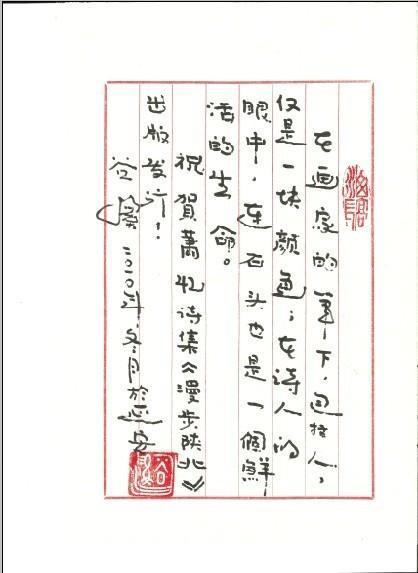 在画家的笔下，包括人，
仅是一块颜色；在诗人的
眼中，连石头也是一個鲜
活的生命。
祝賀蕭诗集《漫步陕北》
出版发行！
谷溪 二〇一〇年冬月於延安